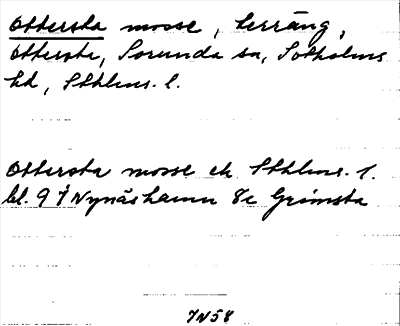 Ottersta mosse, terräng,
Ottersta, Sorunda sn, Sotholms
hd, Sthlms. l.
Ottersta mosse ek Sthlms. l.
bl. 9 I Nynäshamn 8e Grimsta
IN58